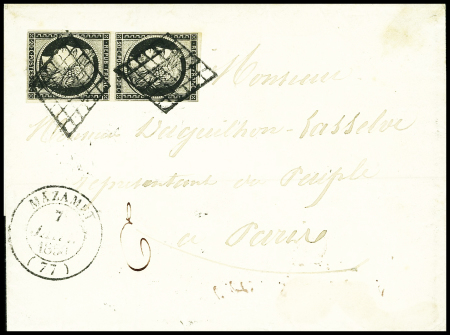 Monsieur
Monsieur Daiguilhon-Lasselve
représentant du Peuple
a Paris
MAZAMET
7
(77)